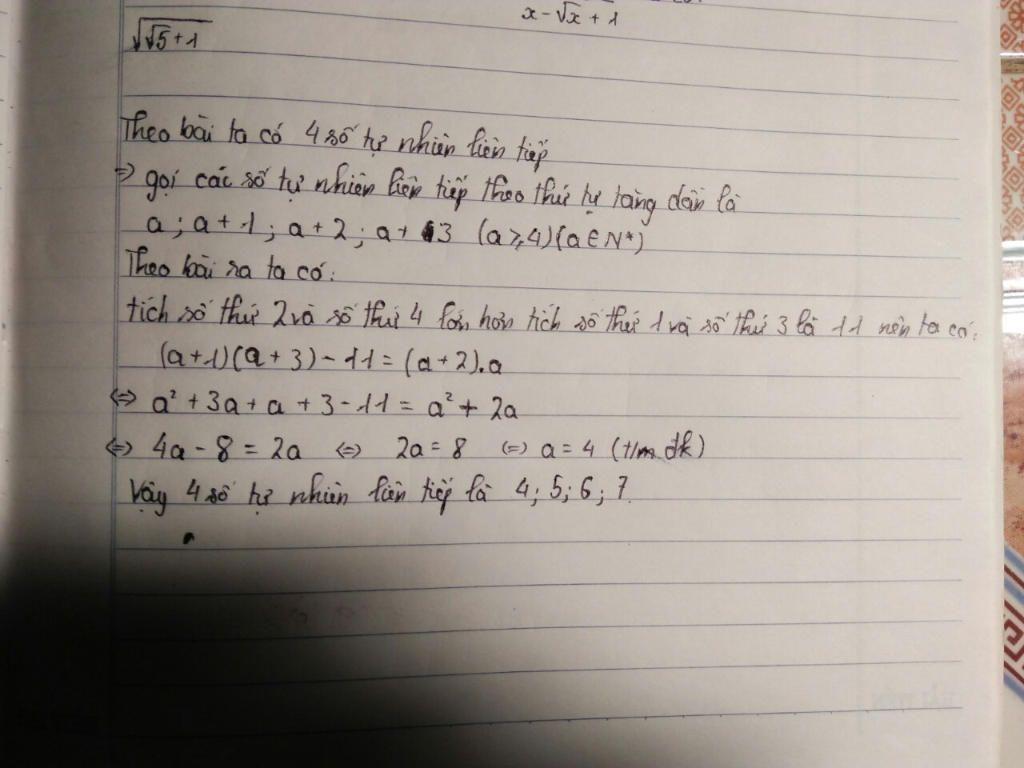 x - √x + 1
√√5 + 1
Theo bài ta có 4 số tự nhiên liên tiếp
⇒ gọi các số tự nhiên liên tiếp theo thứ tự tăng dần là
a ; a + 1 ; a + 2 ; a + 3 (a ≥ 4) (a ∈ N*)
Theo bài ra ta có:
tích số thứ 2 và số thứ 4 lớn hơn tích số thứ 1 và số thứ 3 là 11 nên ta có:
(a + 1)(a + 3) - 11 = (a + 2).a
⇔ a² + 3a + a + 3 - 11 = a² + 2a
⇔ 4a - 8 = 2a ⇔ 2a = 8 ⇔ a = 4 (t/m đk)
Vậy 4 số tự nhiên liên tiếp là 4; 5; 6; 7.